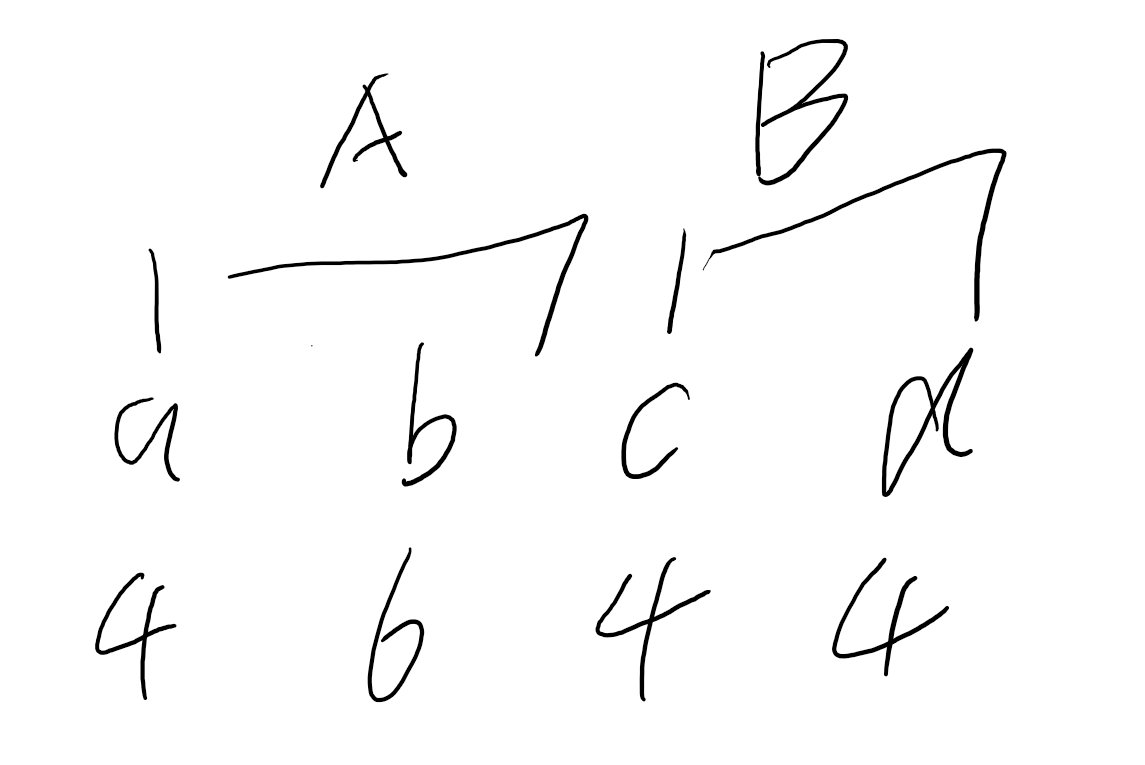 A B
a b c d
4 6 4 4